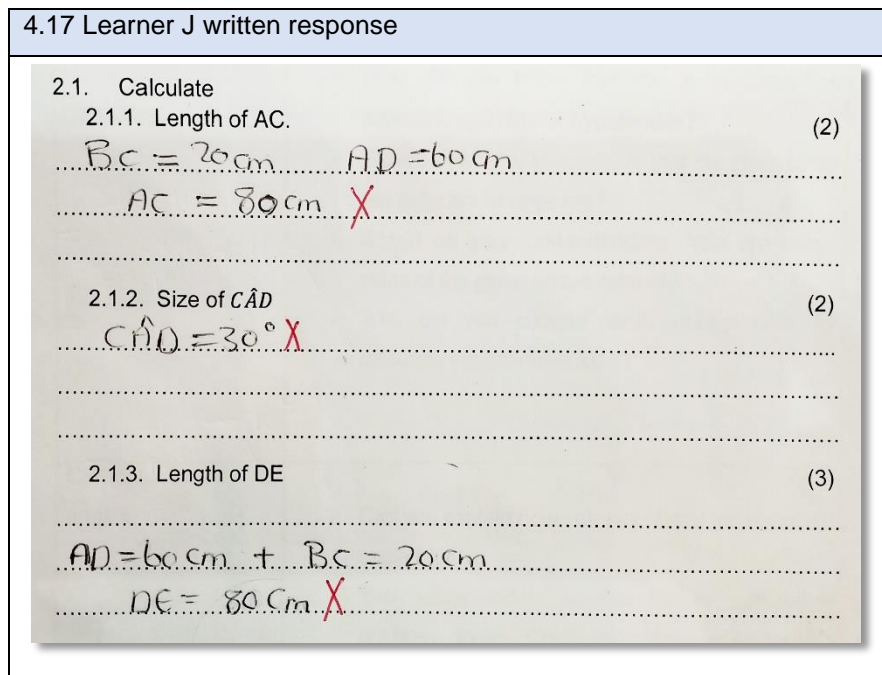 4.17 Learner J written response
2.1. Calculate
2.1.1. Length of AC. (2)
BC = 20cm AD = 60cm
AC = 80cm X
2.1.2. Size of CÂD (2)
CÂD = 30° X
2.1.3. Length of DE (3)
AD = 60cm + BC = 20cm
DE = 80cm X